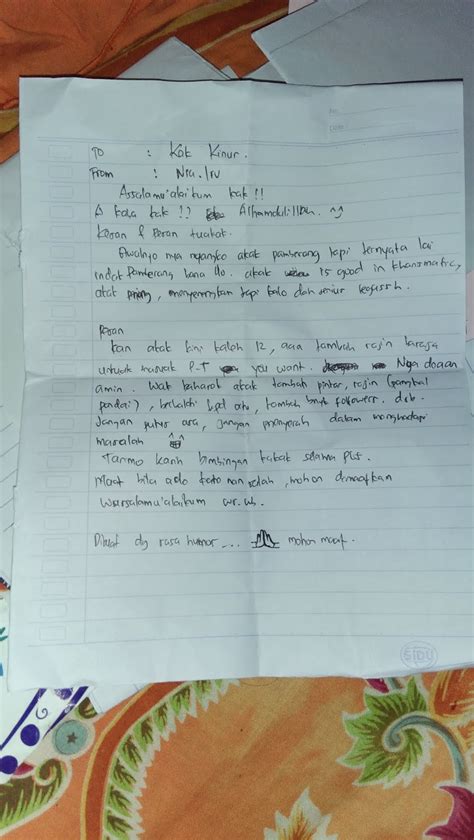 To : Kak Kinur.
From : Nra.
Assalamu'alaikum kak !!
A kaba kak !! Alhamdulillah. ^_^
Kesan & Pesan tuakak.
Awalnyo nya ngangko akak pamberang tapi ternyata lai
indak pamberang bana do. akak is good in kharismatic,
akak, menyenangkan tapi kalo dah serius
Pesan
kan akak kini kalah 12, tambah rajin
untuak masuak P.T you want. Nya doaan
amin. Wak baharok akak tambah pintar, rajin (pangkal
pandai), ipal ado, tambah bnyk followers. dsb.
Jangan putus asa, jangan panyerah dalam menghadapi
masalah ^^
Tarimo kasih bimbingan kakak salama
Maaf bila ado kato nan salah, mohon dimaafkan
Wassalamu'alaikum wr.wb.
Dibuat dg rasa humor ... mohon maaf.
SIDU